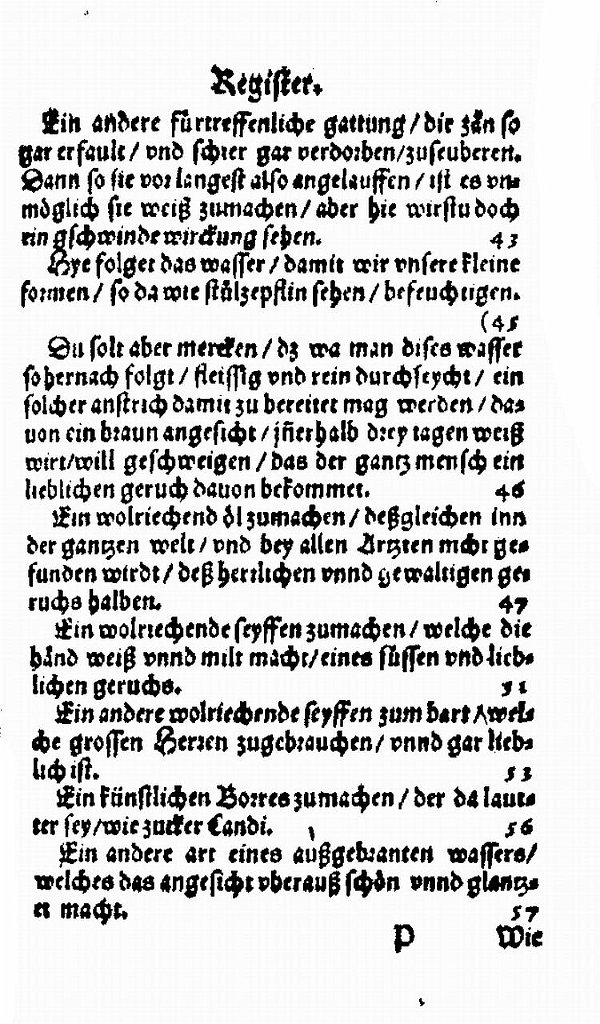 Register.
Ein andere fürtreffenliche gattung/ die zän so
gar erfault/ vnd schier gar verdorben/zuseuberen.
Dann so sie vor langest also angelauffen/ ist es vn-
möglich sie weiß zumachen/ aber hie wirstu doch
ein gschwinde wirckung sehen. 43
Hye folget das wasser/ damit wir vnsere kleine
formen/ so da wie stülzepflin sehen/ befeuchtigen.
(45
Du solt aber mercken/ dz wa man dises wasser
so hernach folgt/ fleissig vnd rein durchseycht/ ein
solcher anstrich damit zu bereitet mag werden/ da-
uon ein braun angesicht/ jñerhalb drey tagen weiß
wirt/will geschweigen/ das der gantz mensch ein
lieblichen geruch dauon bekommet. 46
Ein wolriechend öl zumachen/ deßgleichen inn
der gantzen welt/ vnd bey allen Artzten nicht ge-
funden wirdt/ deß herrlichen vnnd gewaltigen ge-
ruchs halben. 47
Ein wolriechende seyffen zumachen/ welche die
händ weiß vnnd milt macht/eines süssen vnd lieb-
lichen geruchs. 51
Ein andere wolriechende seyffen zum bart/ wel-
che grossen Herren zugebrauchen/ vnnd gar lieb-
lich ist. 53
Ein künstlichen Borres zumachen/ der da laut-
ter sey/wie zucker Candi. 56
Ein andere art eines außgebranten wassers/
welches das angesicht vberauß schön vnnd glantz-
et macht. 57
P Wie